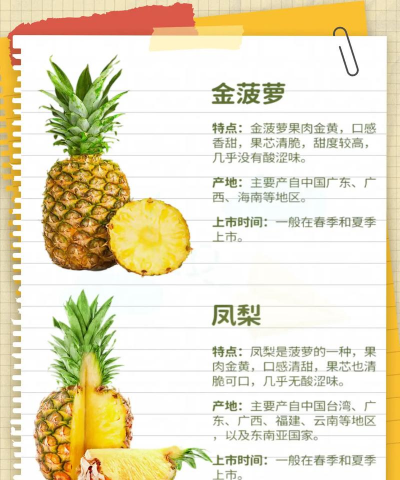 金菠萝
特点：金菠萝果肉金黄，口感
香甜，果芯清脆，甜度较高，
几乎没有酸涩味。
产地：主要产自中国广东、广
西、海南等地区。
上市时间：一般在春季和夏季
上市。
凤梨
特点：凤梨是菠萝的一种，果
肉金黄，口感清甜，果芯也清
脆可口，几乎无酸涩味。
产地：主要产自中国台湾、广
东、广西、福建、云南等地区
，以及东南亚国家。
上市时间：一般在春季和夏季
上市。